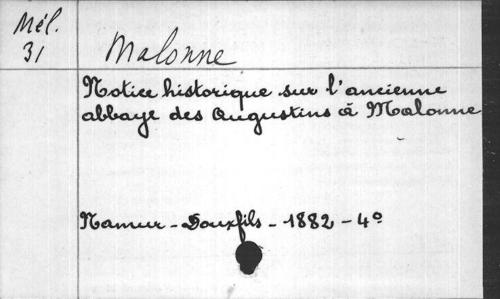 Mél.
31
Malonne
Notice historique sur l'ancienne
abbaye des Augustins à Malonne
Namur - Douxfils - 1882 - 4º